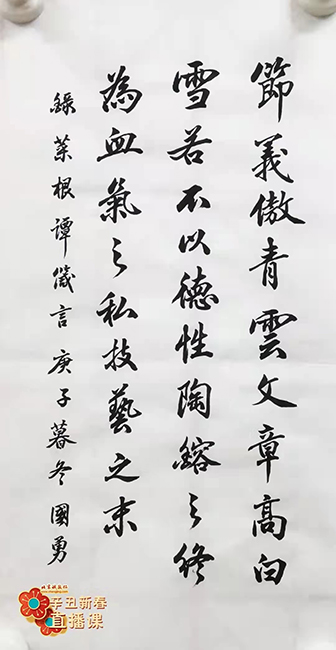 節義傲青雲文章高白
雪若不以德性陶鎔之終
為血氣之私技藝之末
錄菜根譚箴言庚子暮冬國勇
辛丑新春
直播课